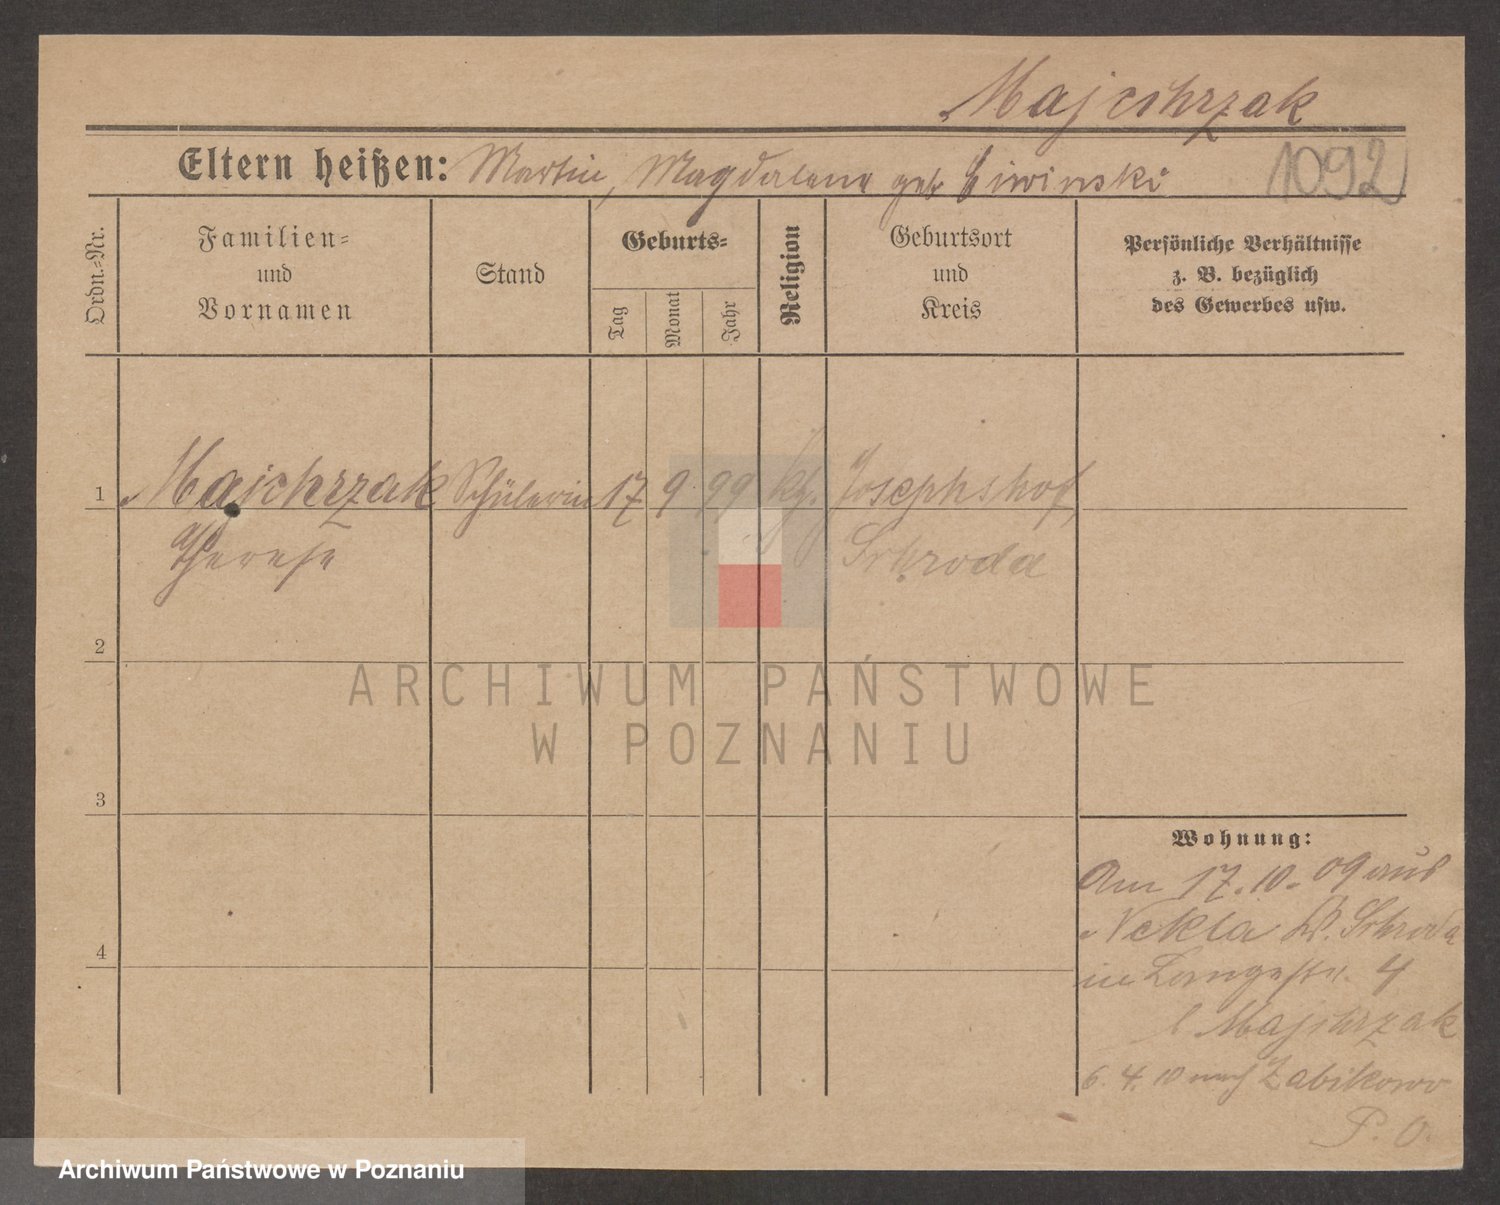 Majchrzak
Eltern heißen: Martin, Magdalena geb Liwinski
1092
Ordn.-Nr.
Familien-
und
Vornamen
Stand
Geburts-
Tag
Monat
Jahr
Religion
Geburtsort
und
Kreis
Persönliche Verhältnisse
z. B. bezüglich
des Gewerbes usw.
1
Majchrzak Schülerin 17 9 99 kth. Josephshof,
Therese
Schroda
2
3
4
Wohnung:
Am 17.10.09 aus
Nekla Kr. Schroda
in Langestr. 4
b Majchrzak
6. 4. 10 nach Zabikowo
P. O.
ARCHIWUM PAŃSTWOWE
W POZNANIU
Archiwum Państwowe w Poznaniu